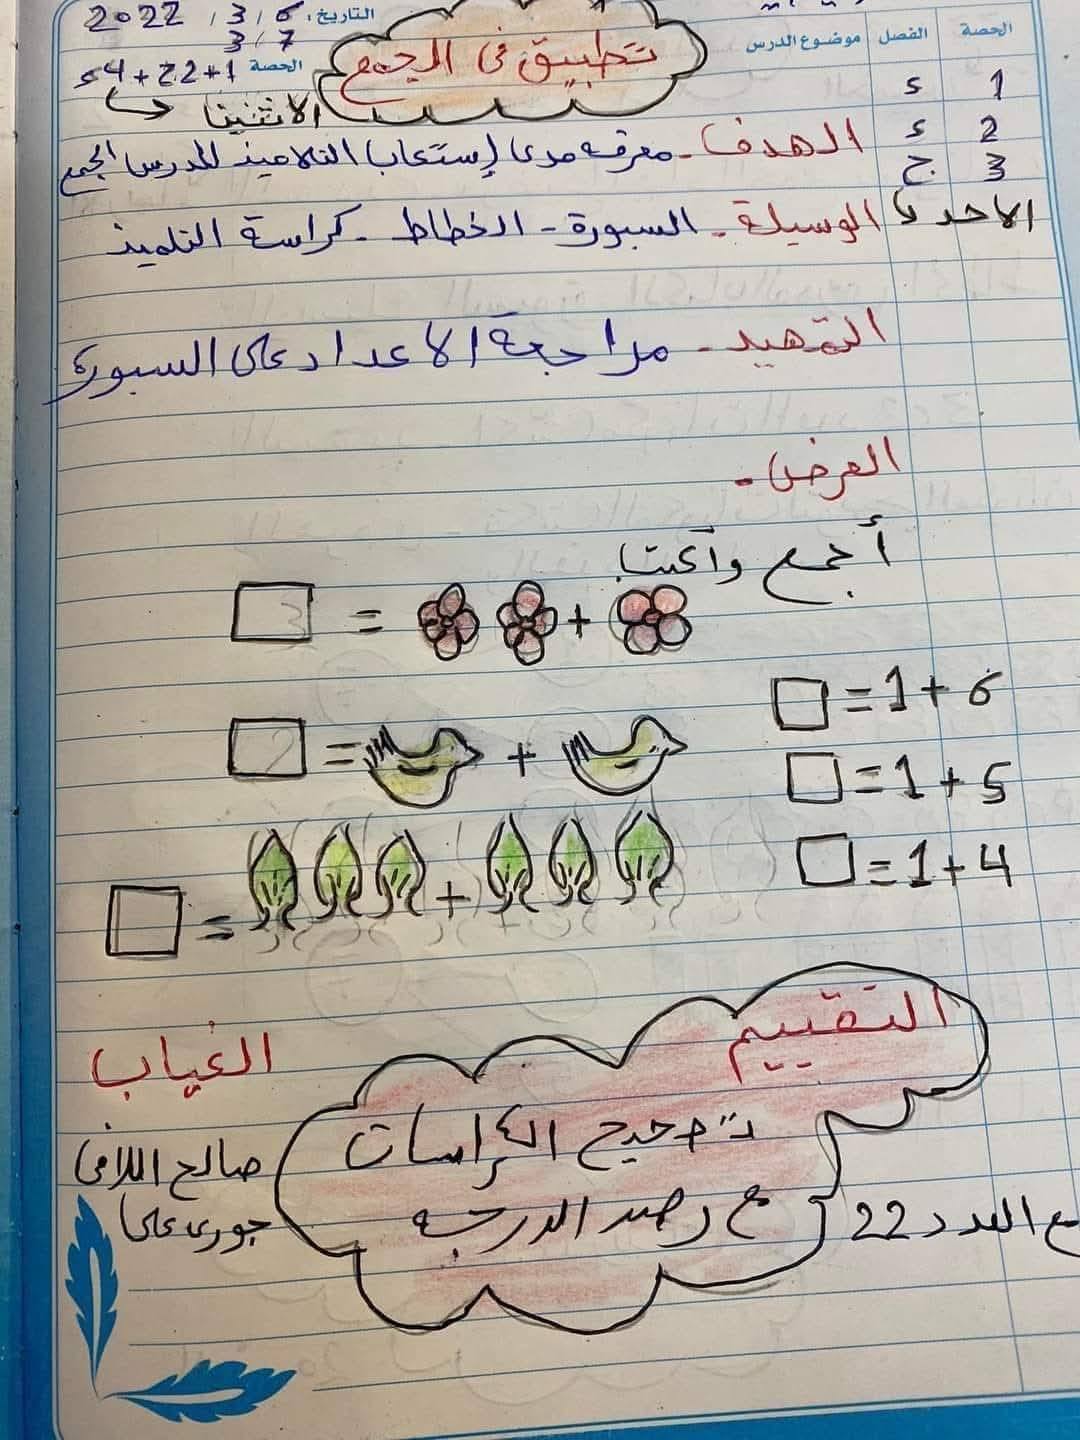 التاريخ: 6 / 3 / 2022
7 / 3
الحصة 1+2ح + 4د
الاثنين
تطبيق في الجمع
الحصة الفصل موضوع الدرس
1 د
2 د
3 ج
الاحد
الهدف - معرفه مدى إستعاب التلاميذ للدرس الجمع
الوسيلة - السبورة - الخطاط - كراسة التلميذ
التمهيد - مراجعة الاعداد على السبورة
العرض -
أجمع وأكتب
+ = □
6 + 1 = □
+ = □
5 + 1 = □
4 + 1 = □
+ = □
التقييم
تصحيح الكراسات
مع رصد الدرجه
الغياب
صالح اللافي
جورى على
مع العدد 22